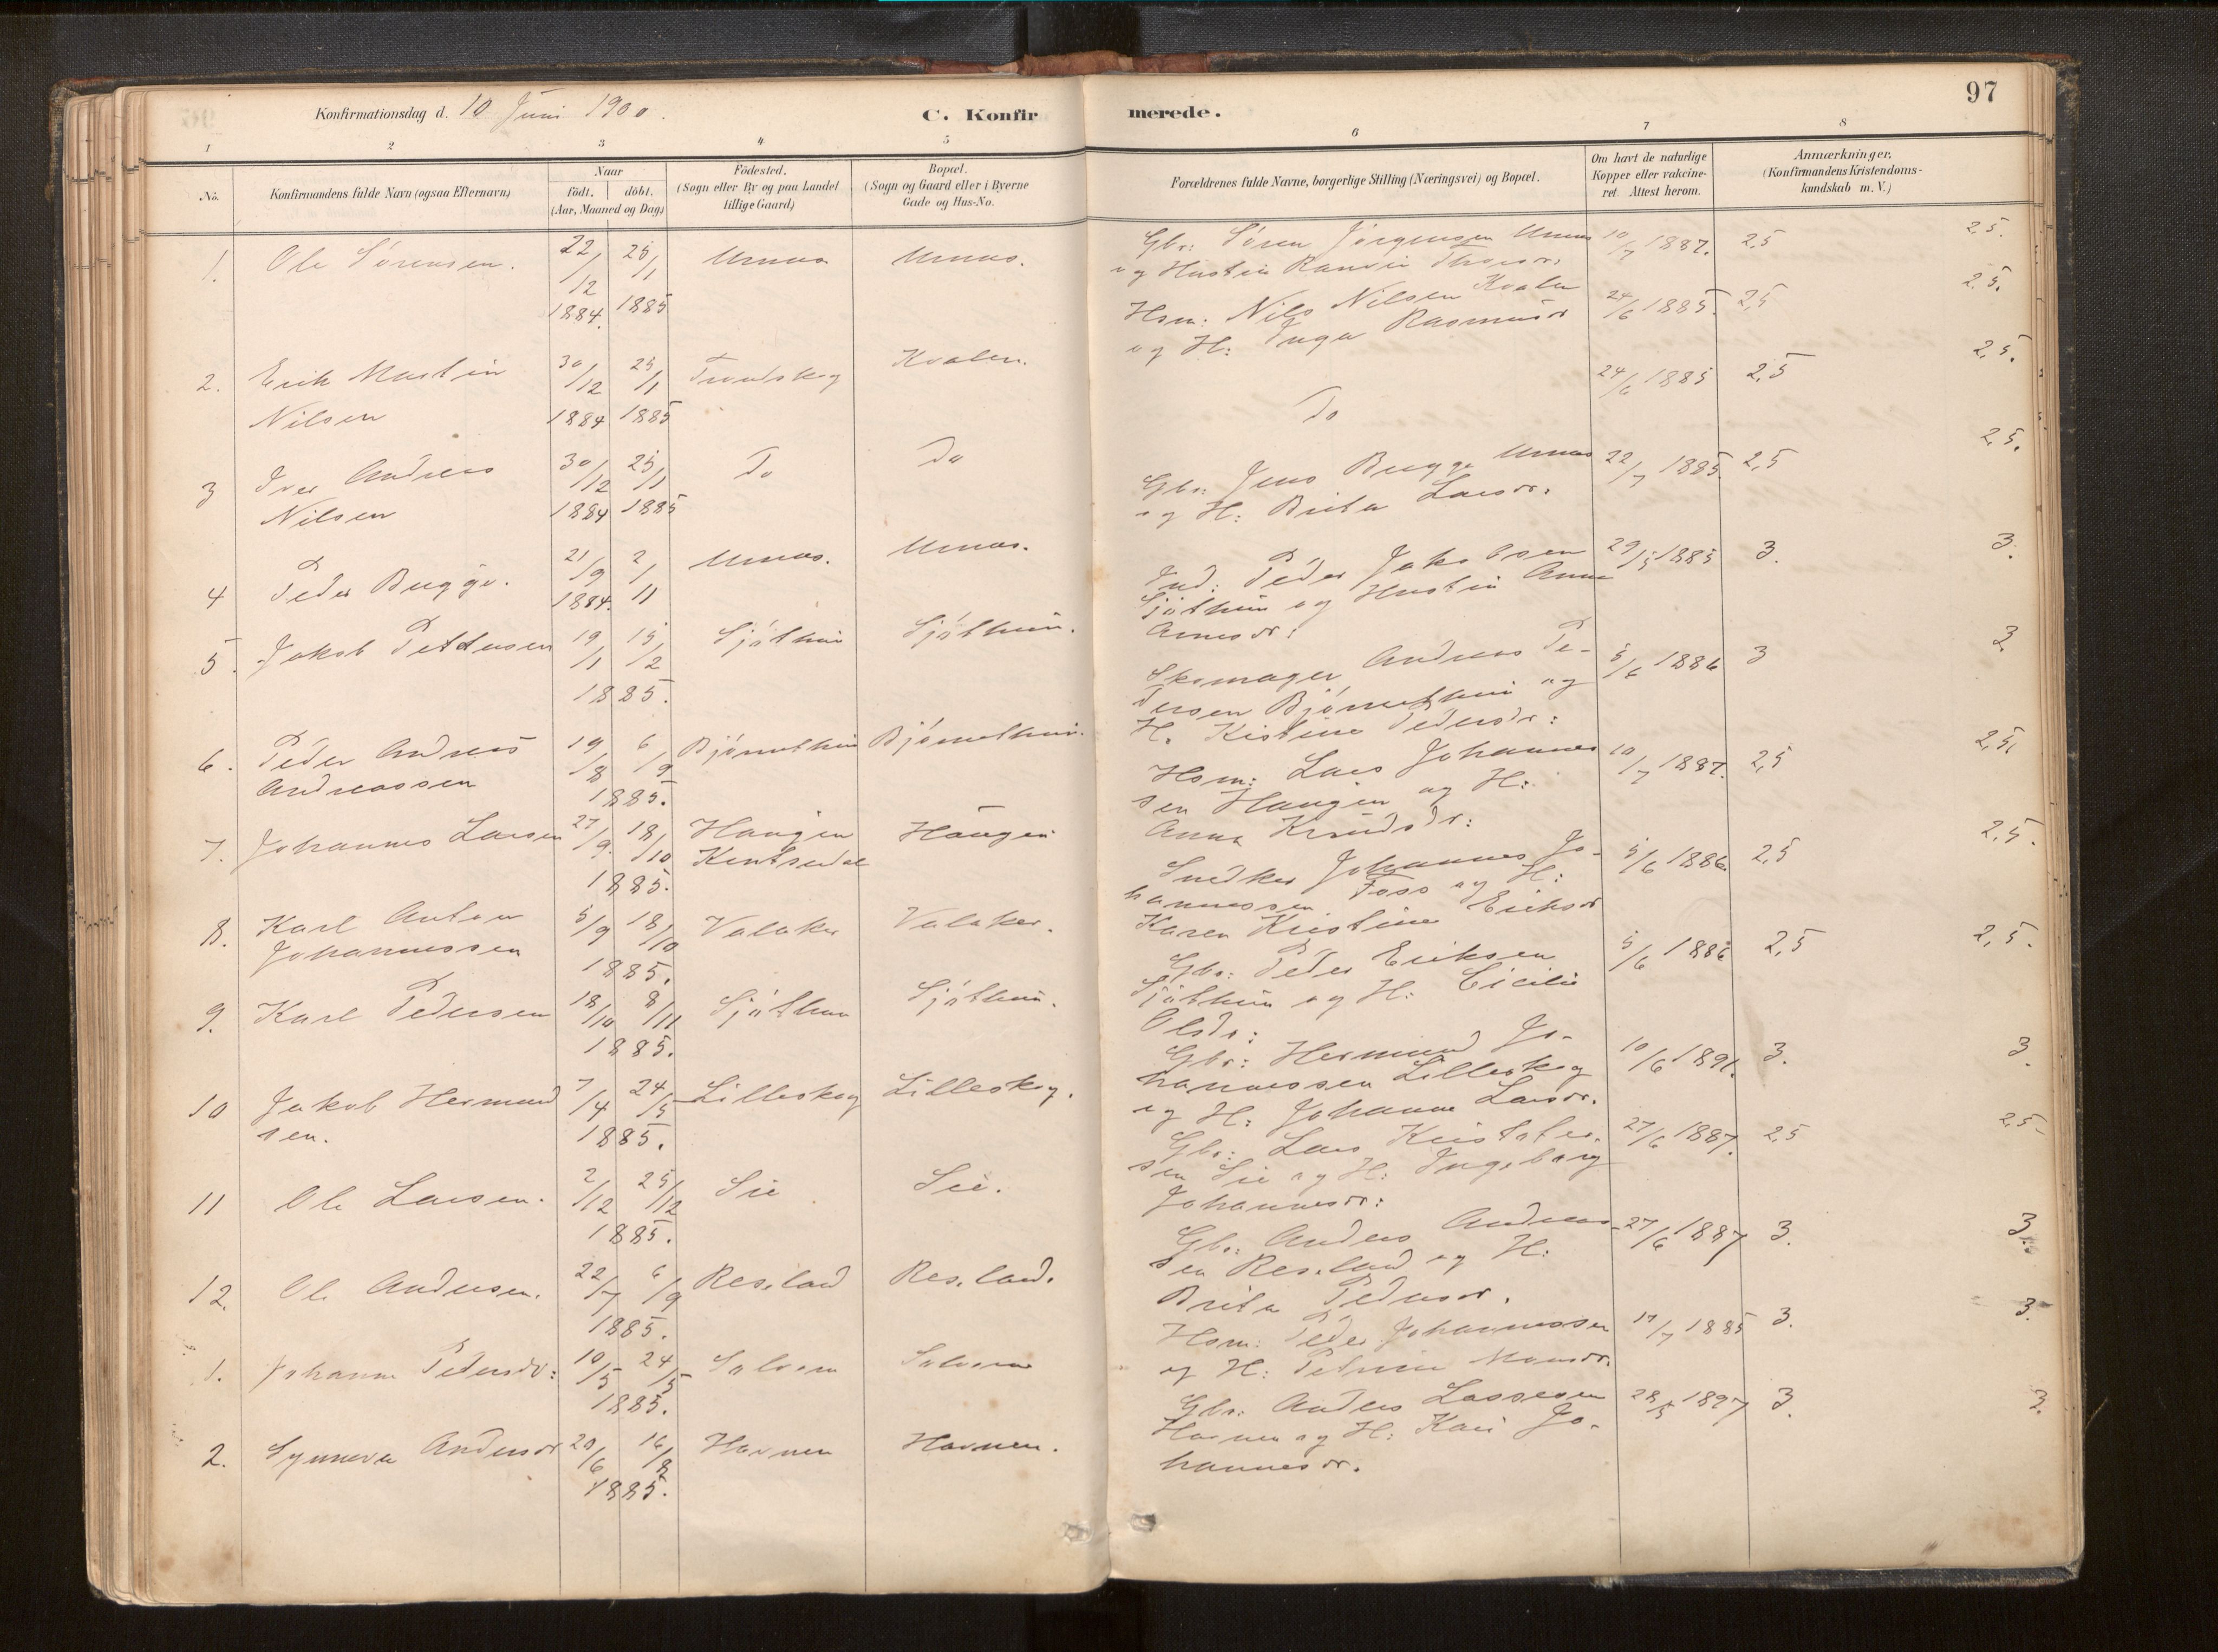 Konfirmationsdag d. 10 Juni 1900.
C. Konfirmerede.
97
1 2 3 4 5 6 7 8
No.
Konfirmandens fulde Navn (ogsaa Efternavn)
Naar
födt. döbt.
(Aar, Maaned og Dag)
Födested.
(Sogn eller By og paa Landet
tillige Gaard)
Bopæl.
(Sogn og Gaard eller i Byerne
Gade og Hus-No.
Forældrenes fulde Navne, borgerlige Stilling (Næringsvei) og Bopæl.
Om havt de naturlige
Kopper eller vakcine-
ret. Attest herom.
Anmærkninger.
(Konfirmandens Kristendoms-
kundskab m. V.)
1. Ole Sörensen. 22/12 1884. 25/1 1885 Urnes Urnes.
Gbr: Sören Jörgensen Urnes
og Hustru Thoesdr.
10/7 1887. 2,5 2,5.
2. Erik Martin
Nilsen
30/12 1884 25/1 1885 Kvalen.
Hsm: Nils Nilsen Kvalen
og H: Inga Rasmusdr
24/6 1885. 2,5 2,5.
3 Iver Andreas
Nilsen
30/12 1884 25/1 1885 Do Do
Do
24/6 1885 2,5 2,5.
4 Peder Bugge. 21/9 1884. 2/11 Urnes. Urnes.
Gbr: Jens Bugge Urnes
og H: Brita Larsdr.
22/7 1885. 2,5 2,5.
5. Jakob Pedersen 19/1 15/2 1885. Sjöthun Sjöthun.
Ind: Peder Jakobsen
Sjöthun og Hustru Anna
Arnesdr:
29/5 1885 3. 3.
6. Peder Andreas
Andreassen
19/8 6/9 1885. Björnethun Björnethun.
Skomager Andreas Pe-
dersen Björnethun og
H. Kistine Pedersdr:
5/6 1886 3 3
7. Johannes Larsen 27/9. 18/10 1885. Haugen
Haugen
Hsm: Lars Johannes
sen Haugen og H:
Anna Knudsdr:
10/7 1887. 2,5 2,5.
8. Karl Anton
Johannessen
5/9 18/10 1885. Valaker Valaker.
Snedker Johannes Jo-
hannessen Foss og H:
Karen Kristine Eriksdr
5/6 1886. 2,5 2,5.
9. Karl Pedersen 18/10 8/11 1885. Sjöthun Sjöthun.
Gbr: Peder Eriksen
Sjöthun og H: Cicilie
Olsdr:
5/6 1886 2,5 2,5.
10 Jakob Hermund
sen.
7/4 24/5 1885. Lilleskog Lilleskog.
Gbr: Hermund Jo-
hannessen Lilleskog
og H: Johanne Larsdr.
10/6 1891. 3. 3.
11 Ole Larsen. 2/12 25/12 1885. Sie Sie.
Gbr: Lars Kristofer-
sen Sie og H: Ingeborg
Johannesdr:
27/6 1887. 2,5 2,5
12. Ole Andersen. 22/7 6/9 1885. Reseland Reseland.
Gbr: Anders Anders
sen Reseland og H:
Brita Pedersdr.
27/6 1887 3. 3.
1. Johanne Pedersdr: 10/5 24/5 1885. Solvorn Solvorn
Hsm: Peder Johannessen
og H: Petrine Monsdr.
17/7 1885 3. 3.
2. Synneva Andersdr 20/6 16/8 1885. Havnen Havnen.
Gbr: Anders Lassesen
Havnen og H: Kari Jo-
hannesdr.
28/5 1897 3. 3.